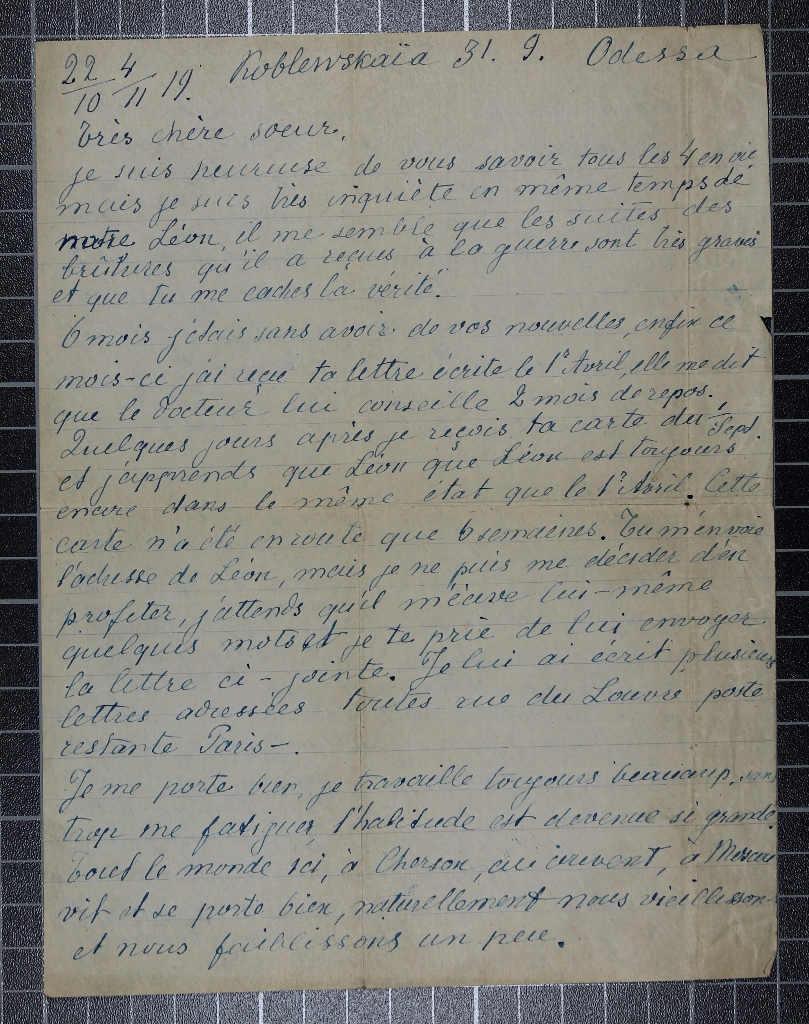 22/10 4/11 19. Koblewskaïa 31. 9. Odessa
Très chère soeur,
je suis heureuse de vous savoir tous les 4 en vie
mais je suis très inquiète en même temps de
notre Léon, il me semble que les suites des
brûlures qu'il a reçues à la guerre sont très graves
et que tu me caches la vérité.
6 mois j'étais sans avoir de vos nouvelles, enfin ce
mois-ci j'ai reçu ta lettre écrite le 1r Avril, elle me dit
que le docteur lui conseille 2 mois de repos.
Quelques jours après je reçois ta carte du Sept.
et j'apprends que Léon que Léon est toujours
encore dans le même état que le 1r Avril. Cette
carte n'a été en route que 6 semaines. Tu m'envoie
l'adresse de Léon, mais je ne puis me décider d'en
profiter, j'attends qu'il m'écrive lui-même
quelques mots et je te prie de lui envoyer
la lettre ci-jointe. Je lui ai écrit plusieurs
lettres adressées toutes rue du Louvre poste
restante Paris-.
Je me porte bien, je travaille toujours beaucoup, sans
trop me fatiguer, l'habitude est devenue si grande.
Tout le monde ici, à Cherson, au couvent, à Moscou
vit et se porte bien, naturellement nous vieillissons
et nous faiblissons un peu.